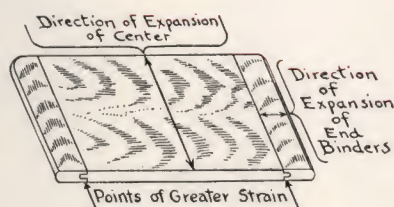 Direction of Expansion
of Center
Direction
of
Expansion
of
End
Binders
Points of Greater Strain